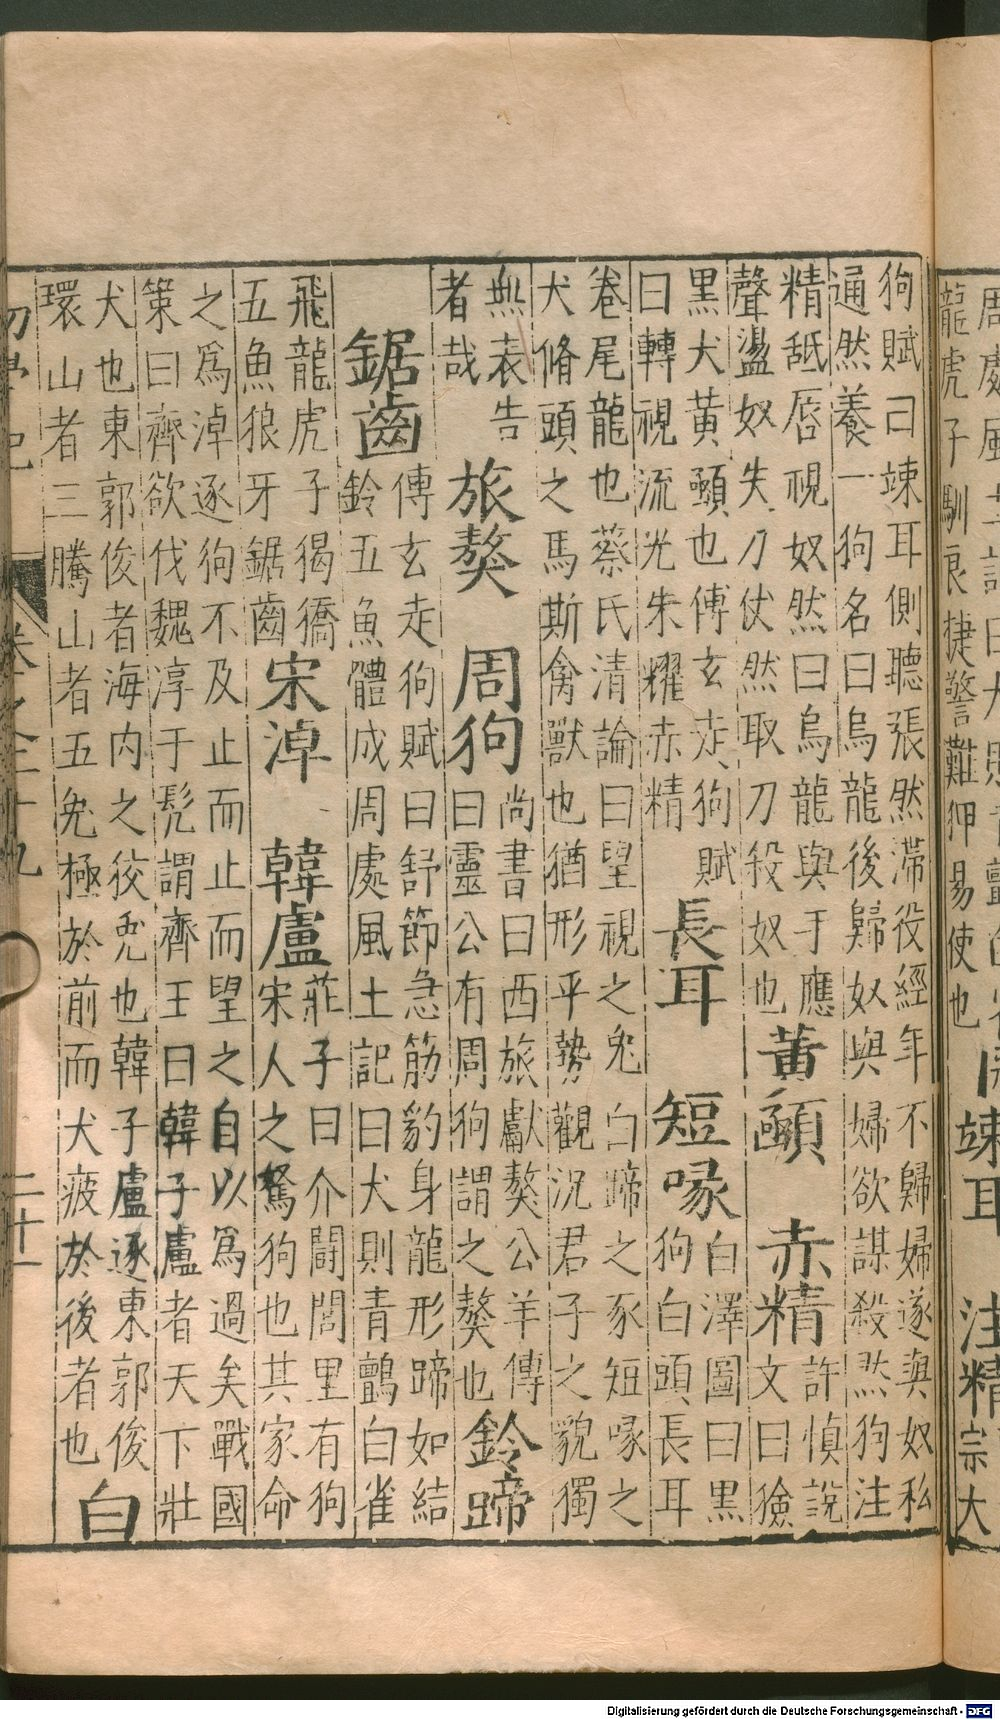 周處風土記曰犬則青鸇白雀
龍虎子馴良捷警難狎易使也
竦耳 注精
宗大
狗賦曰竦耳側聽張然滯役經年不歸婦遂與奴私
通然養一狗名曰烏龍後歸奴與婦欲謀殺然狗注
精舐唇視奴然曰烏龍與于應
聲盪奴失刀仗然取刀殺奴也
黃顄 赤精
許慎說
文曰獫
黑犬黃顄也傅玄走狗賦
曰轉視流光朱耀赤精
長耳 短喙
白澤圖曰黑
狗白頭長耳
卷尾龍也蔡氏清論曰望視之兔白蹄之豕短喙之
犬脩頭之馬斯禽獸也猶形乎勢觀況君子之貌獨
無表告
者哉
旅獒 周狗
尚書曰西旅獻獒公羊傳
曰靈公有周狗謂之獒也
鈴蹄
鋸齒
傅玄走狗賦曰舒節急筋豹身龍形蹄如結
鈴五魚體成周處風土記曰犬則青鸇白雀
飛龍虎子猲獢
五魚狼牙鋸齒
宋淖 韓盧
莊子曰介閭里有狗
宋人之駑狗也其家命
之爲淖逐狗不及止而止而望之自以爲過矣戰國
策曰齊欲伐魏淳于髡謂齊王曰韓子盧者天下壯
犬也東郭俊者海内之狡兔也韓子盧逐東郭俊
環山者三騰山者五兔極於前而犬疲於後者也
白
初學記 卷之二十九 二十一
Digitalisierung gefördert durch die Deutsche Forschungsgemeinschaft - DFG